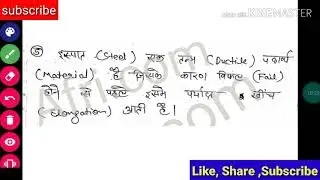 subscribe
Made with KINEMASTER
⑤ इस्पात (Steel) एक तन्य (Ductile) पदार्थ
(Material) है जिसके कारण विफल (Fail)
होने से पहले इसमे पर्याप्त खींच
(Elongation) आती है।
Like, Share ,Subscribe